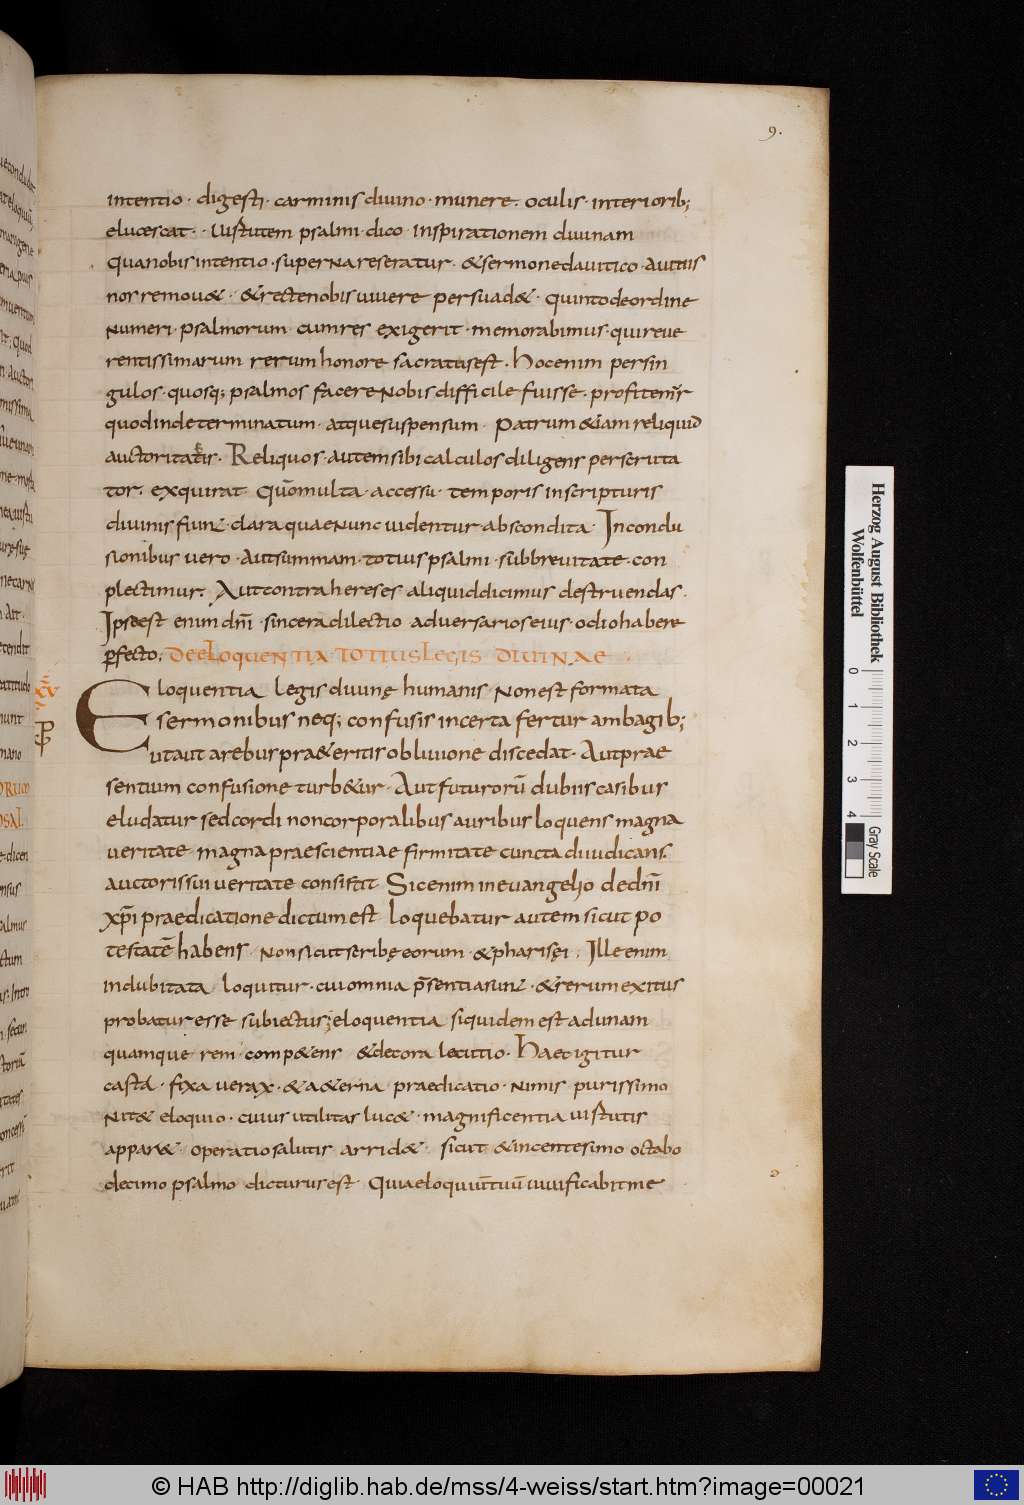 9.
intentio · digesti · carminis diuino · munere · oculis · interiorib;
elucescat · uirtutem psalmi · dico · inspirationem diuinam
qua nobis intentio · superna reseratur · & sermone dauitico · a uitiis
nos remou& · & recte nobis uiuere persuad& · quinto de ordine
numeri · psalmorum cum res exigerit · memorabimus · qui reue
rentissimarum rerum honore sacratus est · hoc enim per sin
gulos · quosq; psalmos facere nobis difficile fuisse · profitemur
quod indeterminatum · atque suspensum · patrum &iam reliquid
auctoritatis · Reliquos · autem sibi calculos diligens perscruta
tor · exquirat quōmulta · accessu · temporis in scripturis
diuinis fiunt · clara quae nunc uidentur abscondita · In conclu
sionibus uero · aut summam · totius psalmi · sub breuitate · con
plectimur. Aut contra hereses aliquid dicimus destruendas ·
Ipse est enim dnī · sincera dilectio aduersarios eius · odio habere
ꝑfecto; DE ELOQUENTIA TOTIUS LEGIS DIUINAE
XV
Eloquentia legis diuinę humanis non est formata
sermonibus neq; confusis incerta fertur ambagib;
Ut aut a rebus pra&eritis obliuione discedat · Aut prae
sentium confusione turb&ur · Aut futurorū dubiis casibus
eludatur sed cordi non corporalibus auribus loquens magna
ueritate magna praescientiae firmitate cuncta diiudicans
auctoris sui ueritate consistit Sic enim in euangelio de dnī
xp̄i praedicatione dictum est loquebatur autem sicut po
testatē habens non sicut scribę eorum · & pharisęi · Ille enim
indubitata loquitur · cui omnia p̄sentia sunt · & rerum exitus
probatur esse subiectus; eloquentia siquidem est ad unam
quamque rem comp&ens & decora locutio · Haec igitur
casta · fixa uerax · & a&erna praedicatio · nimis purissimo
nit& eloquio · cuius utilitas luc& · magnificentia uirtutis
appar& operatio salutis arrid& sicut & in centesimo octabo
decimo psalmo dicturus est Quia eloquiū tuū uiuificabit me
Herzog August Bibliothek
Wolfenbüttel
0 1 2 3 4
Gray Scale
© HAB http://diglib.hab.de/mss/4-weiss/start.htm?image=00021